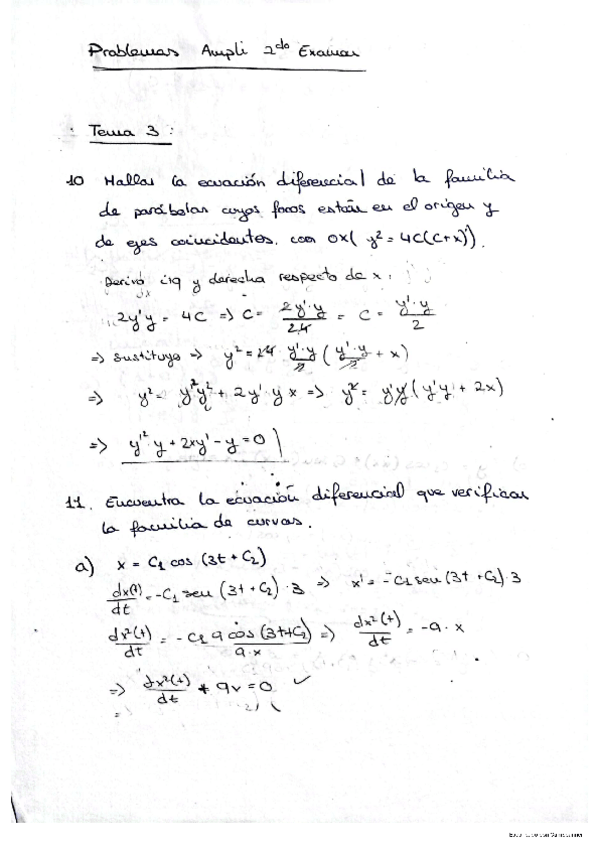 Problemas Ampli 2do Examen
Tema 3:
10 Hallar la ecuación diferencial de la familia
de parábolas cuyos focos están en el origen y
de ejes coincidentes con OX( y² = 4C(C+x)).
Derivo izq y derecha respecto de x:
2y'y = 4C => C = 2y'·y/2·4 = C = y'·y/2
=> sustituyo => y² = 24 y'·y/2 ( y'·y/2 + x)
=> y² = y'²y² + 2y'·yx => y² = y'y(y'y + 2x)
=> y'²y + 2xy' - y = 0
11. Encuentra la ecuación diferencial que verifican
la familia de curvas.
a) x = C1 cos (3t + C2)
dx(t)/dt = -C1 sen (3t + C2)·3 => x' = -C1 sen (3t + C2)·3
dx²(t)/dt = -C1 9 cos (3t+C2) => dx²(t)/dt = -9·x
9·x
=> dx²(t)/dt + 9x = 0 ✓